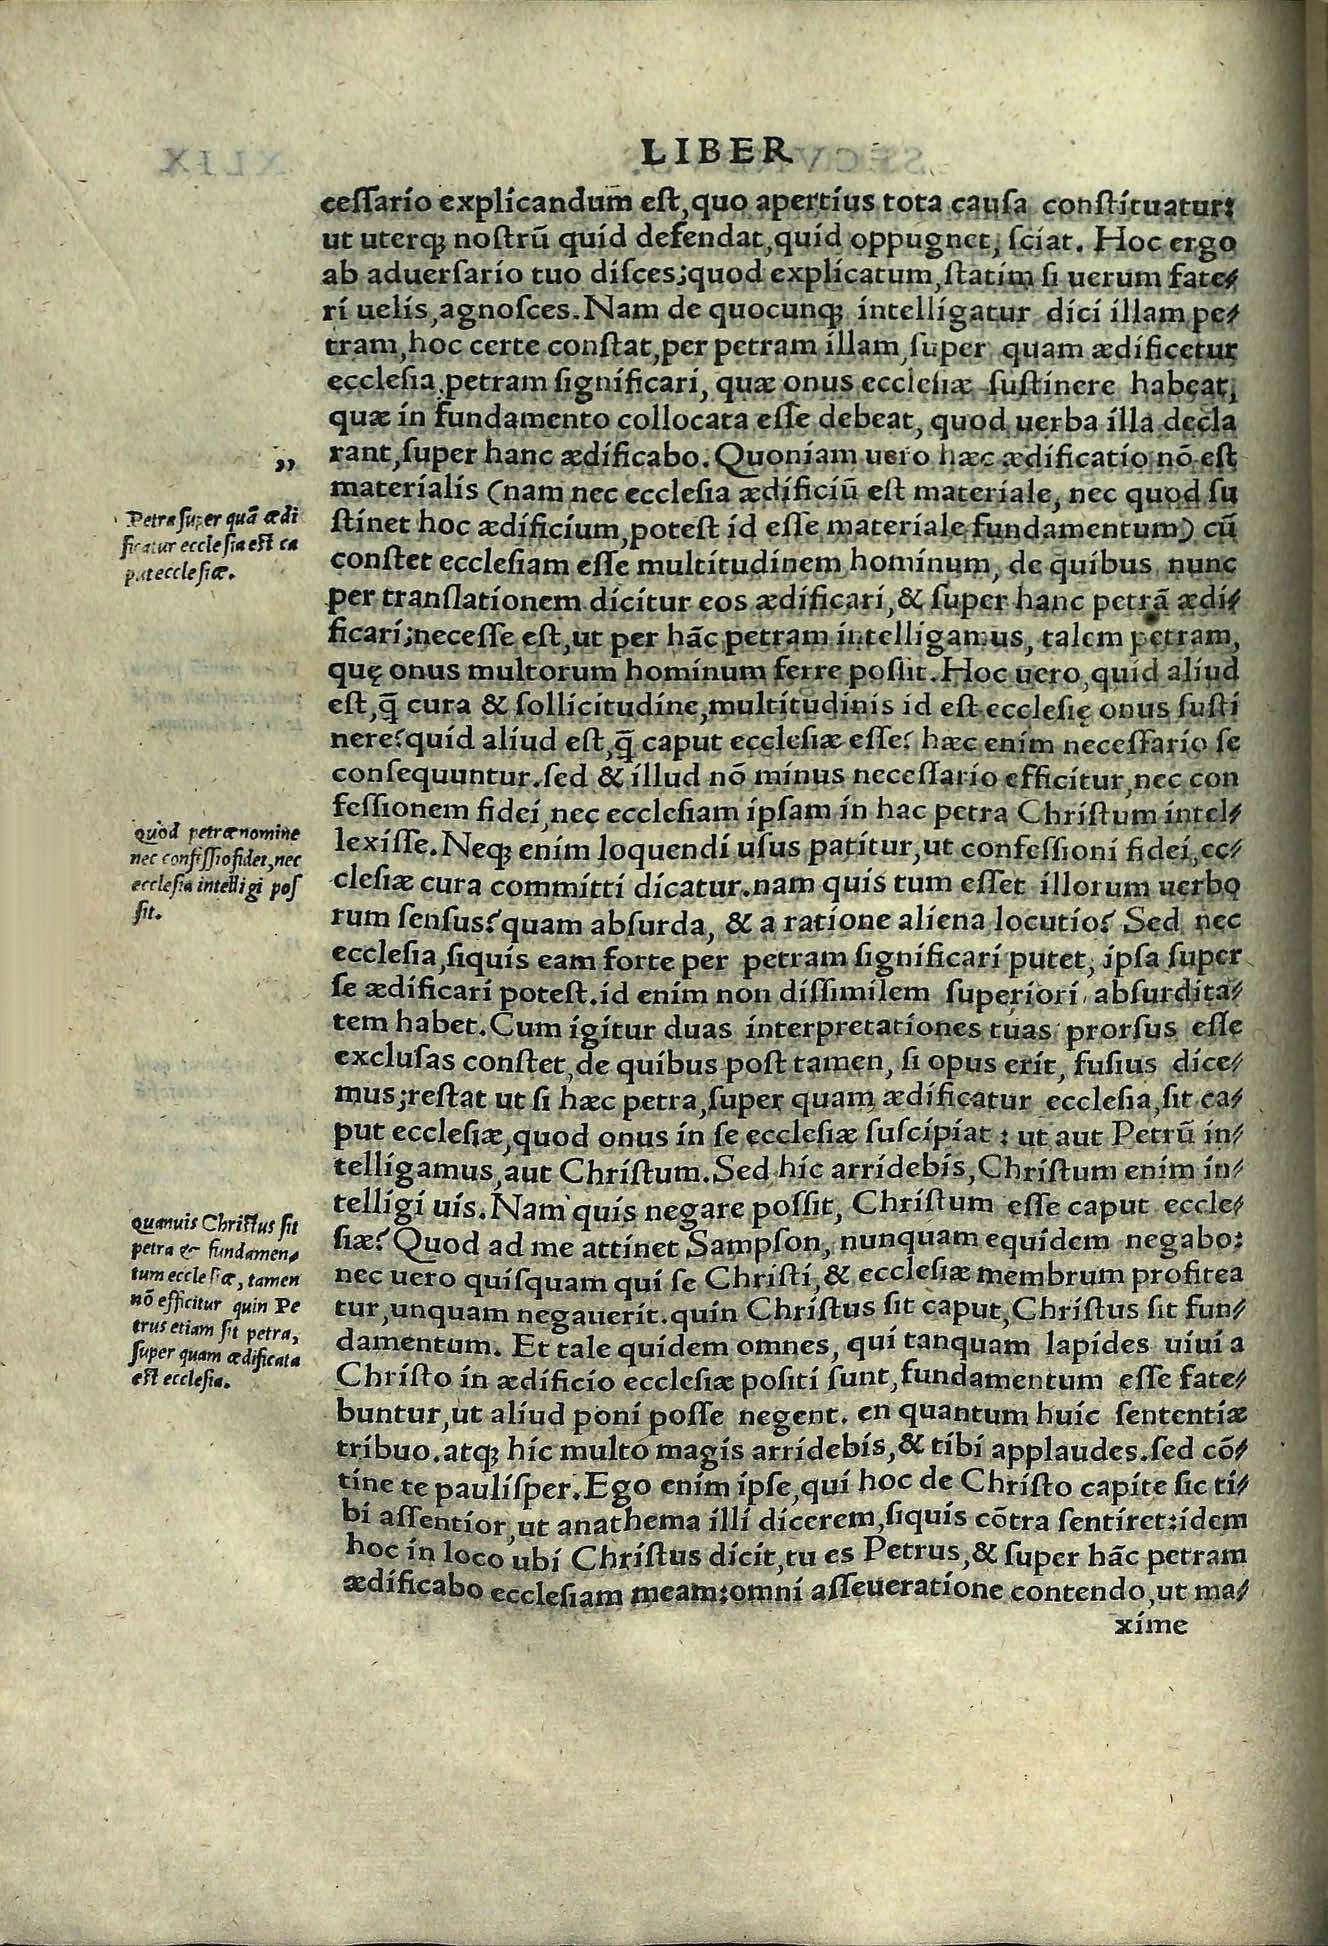 LIBER
ceſſario explicandum eſt, quo apertius tota cauſa conſtituatur:
ut uterqꝫ noſtrū quid defendat, quid oppugnet, ſciat. Hoc ergo
ab aduerſario tuo diſces; quod explicatum, ſtatim ſi uerum fate⸗
ri uelis, agnoſces. Nam de quocunqꝫ intelligatur dici illam pe⸗
tram, hoc certe conſtat, per petram illam, ſuper quam ædificetur
eccleſia, petram ſignificari, quæ onus eccleſiæ ſuſtinere habeat,
quæ in fundamento collocata eſſe debeat, quod uerba illa decla
„ rant, ſuper hanc ædificabo. Quoniam uero hæc ædificatio nō eſt
materialis (nam nec eccleſia ædificiū eſt materiale, nec quod ſu
ſtinet hoc ædificium, poteſt id eſſe materiale fundamentum) cū
conſtet eccleſiam eſſe multitudinem hominum, de quibus nunc
per tranſlationem dicitur eos ædificari, & ſuper hanc petrā ædi⸗
ficari; neceſſe eſt, ut per hāc petram intelligamus, talem petram,
quę onus multorum hominum ferre poſſit. Hoc uero, quid aliud
eſt, q̄ cura & ſollicitudine, multitudinis id eſt eccleſię onus ſuſti
nere? quid aliud eſt, q̄ caput eccleſiæ eſſe? hæc enim neceſſario ſe
conſequuntur. ſed & illud nō minus neceſſario efficitur, nec con
feſſionem fidei, nec eccleſiam ipſam in hac petra Chriſtum intel⸗
lexiſſe. Neqꝫ enim loquendi uſus patitur, ut confeſſioni fidei, ec⸗
cleſiæ cura committi dicatur. nam quis tum eſſet illorum uerbo
rum ſenſus? quam abſurda, & a ratione aliena locutio? Sed nec
eccleſia, ſiquis eam forte per petram ſignificari putet, ipſa ſuper
ſe ædificari poteſt. id enim non diſſimilem ſuperiori abſurdita⸗
tem habet. Cum igitur duas interpretationes tuas prorſus eſſe
excluſas conſtet, de quibus poſt tamen, ſi opus erit, fuſius dice⸗
mus; reſtat ut ſi hæc petra, ſuper quam ædificatur eccleſia, ſit ca⸗
put eccleſiæ, quod onus in ſe eccleſiæ ſuſcipiat: ut aut Petrū in⸗
telligamus, aut Chriſtum. Sed hic arridebis, Chriſtum enim in⸗
telligi uis. Nam quis negare poſſit, Chriſtum eſſe caput eccle⸗
ſiæ? Quod ad me attinet Sampſon, nunquam equidem negabo:
nec uero quiſquam qui ſe Chriſti, & eccleſiæ membrum profitea
tur, unquam negauerit. quin Chriſtus ſit caput, Chriſtus ſit fun⸗
damentum. Et tale quidem omnes, qui tanquam lapides uiui a
Chriſto in ædificio eccleſiæ poſiti ſunt, fundamentum eſſe fate⸗
buntur, ut aliud poni poſſe negent. en quantum huic ſententiæ
tribuo. atqꝫ hic multo magis arridebis, & tibi applaudes. ſed cō⸗
tine te pauliſper. Ego enim ipſe, qui hoc de Chriſto capite ſic ti⸗
bi aſſentior, ut anathema illi dicerem, ſiquis cōtra ſentiret: idem
hoc in loco ubi Chriſtus dicit, tu es Petrus, & ſuper hāc petram
ædificabo eccleſiam meam: omni aſſeueratione contendo, ut ma⸗
xime
Petra ſuper quā ædi
ficatur eccleſia eſt ca
put eccleſiæ.
quòd petræ nomine
nec confeſſio fidei, nec
eccleſia intelligi poſ
ſit.
quanuis Chriſtus ſit
petra & fundamen⸗
tum eccleſiæ, tamen
nō efficitur quin Pe
trus etiam ſit petra,
ſuper quam ædificata
eſt eccleſia.